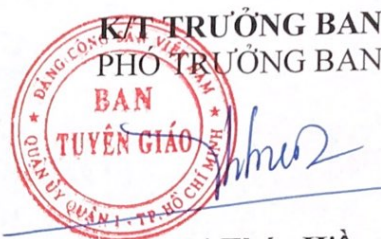 K/T TRƯỞNG BAN
PHÓ TRƯỞNG BAN
ĐẢNG CỘNG SẢN VIỆT NAM
BAN
TUYÊN GIÁO
QUẬN ỦY QUẬN 1 - TP. HỒ CHÍ MINH